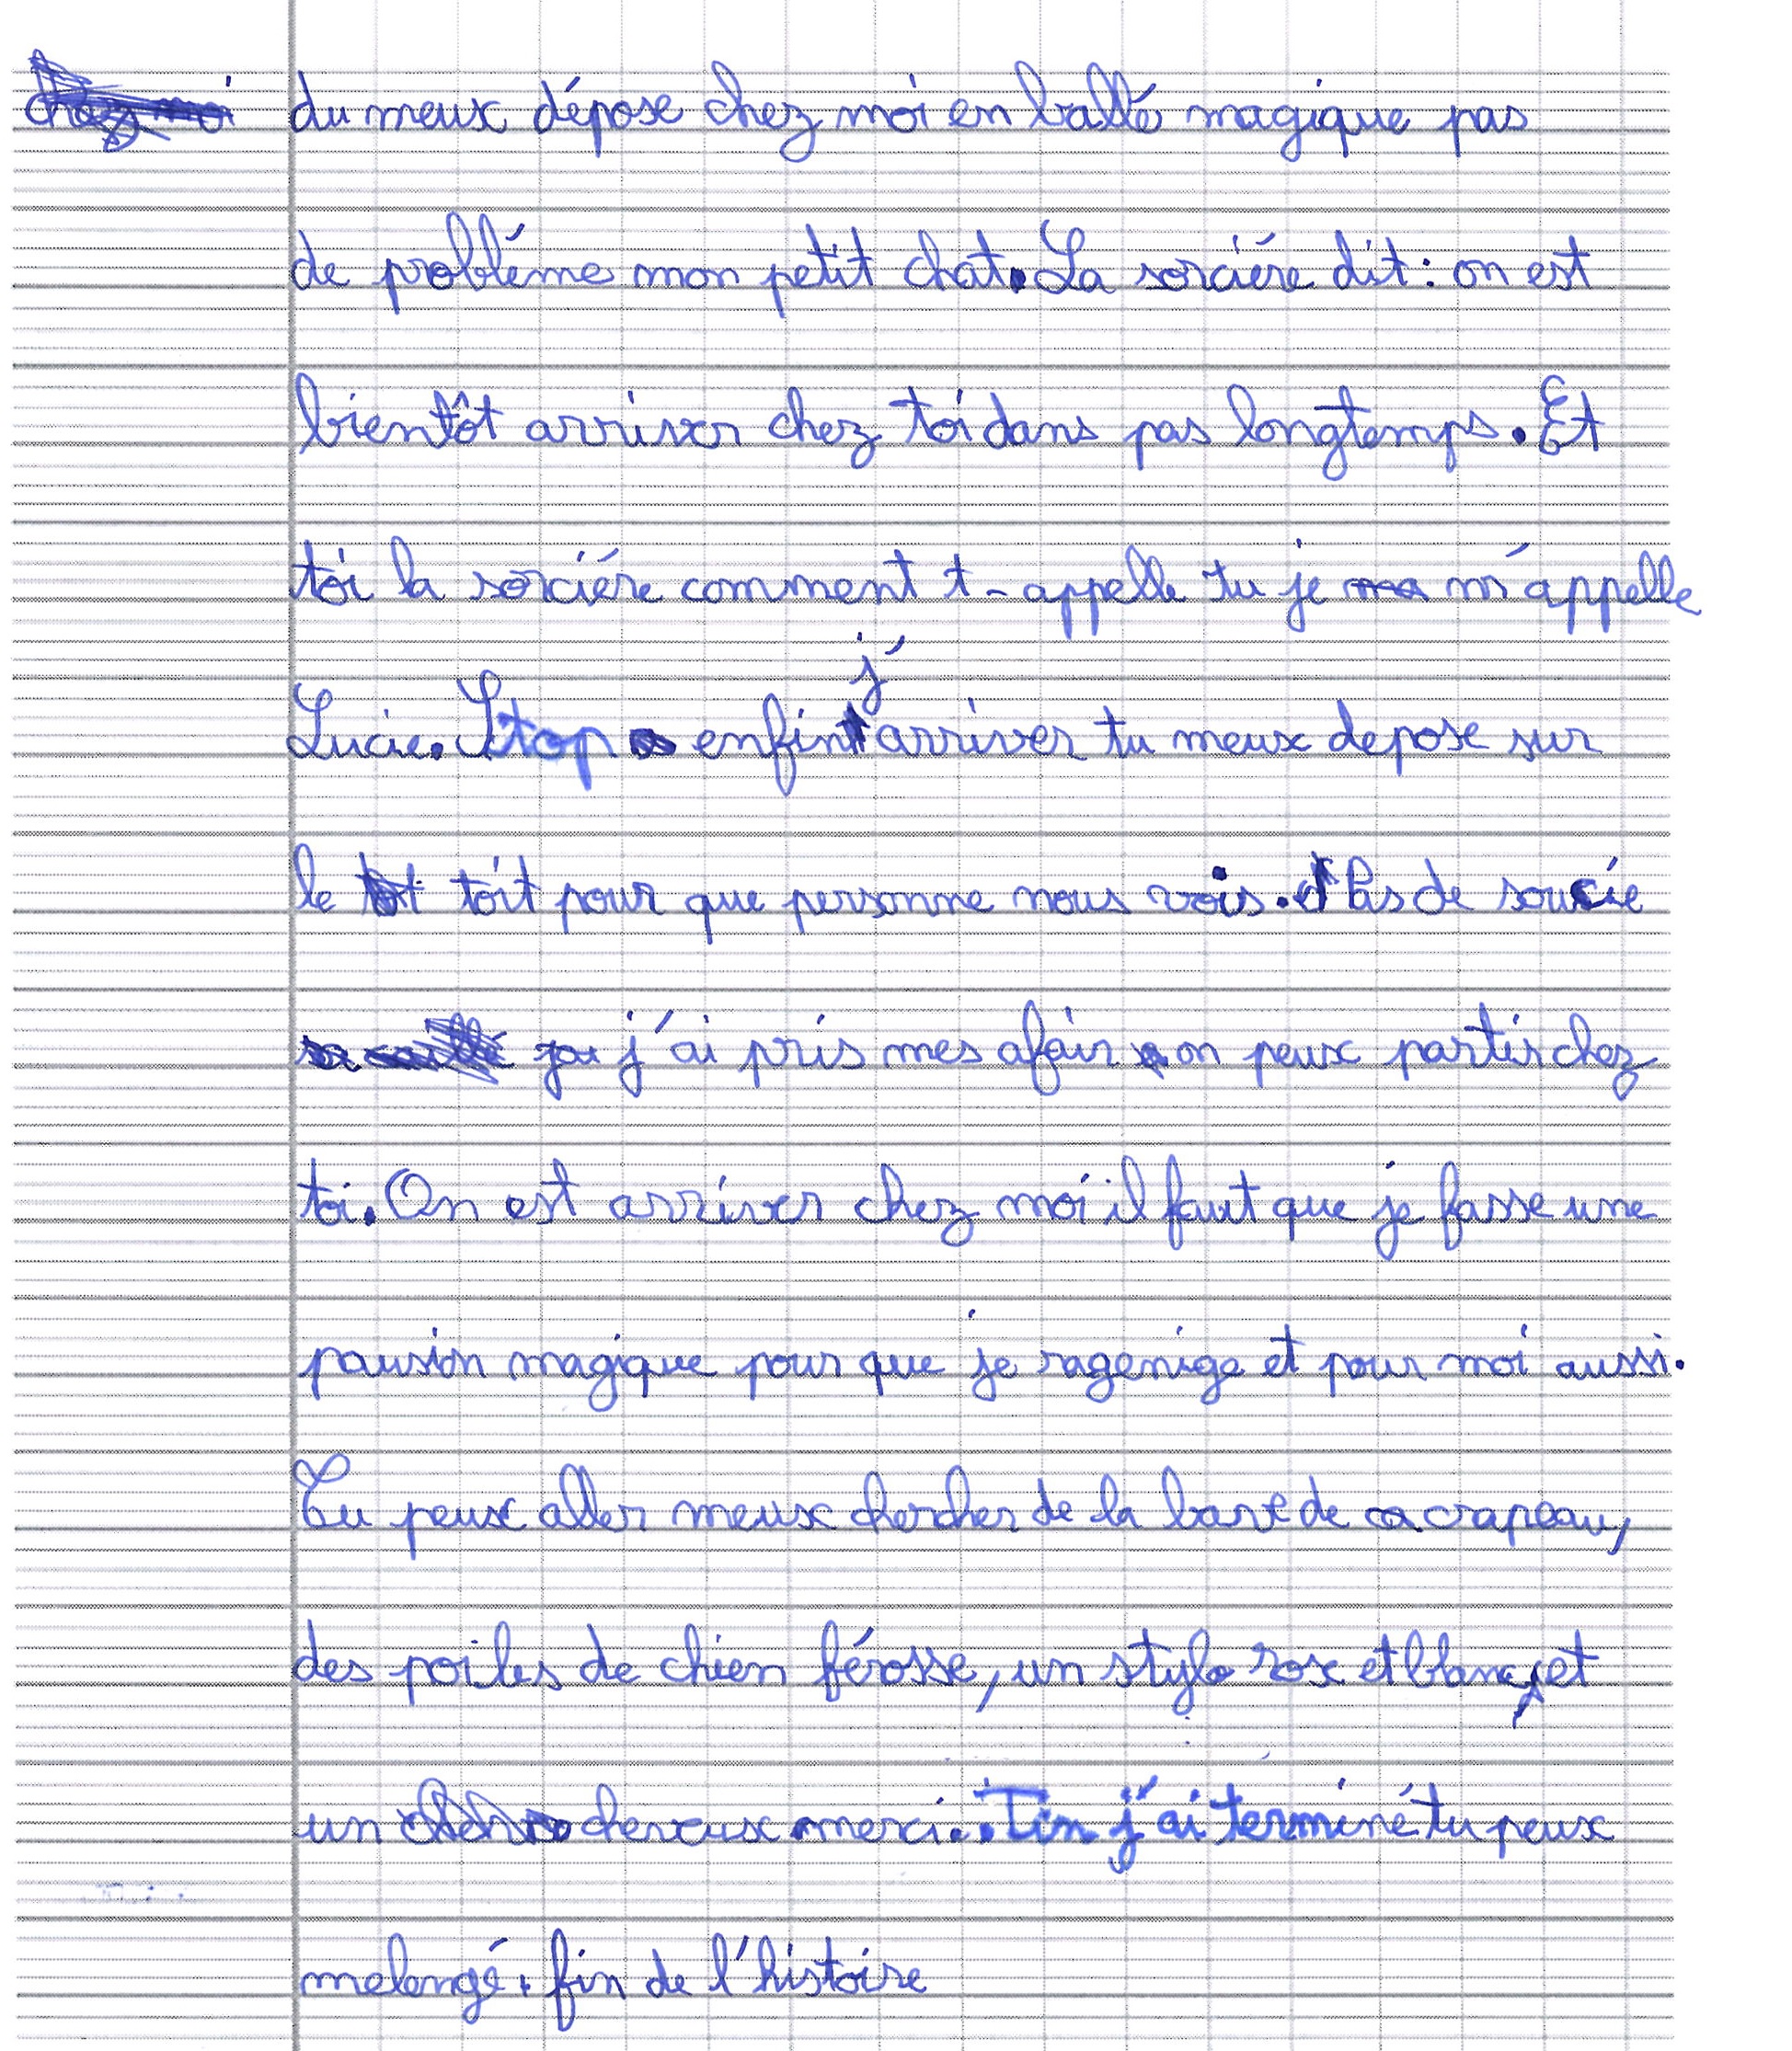 du meux dépose chez moi en ballé magique pas
de probléme mon petit chat. La sorciére dit : on est
bientôt arriver chez toi dans pas longtemps. Et
toi la sorciére comment t-appelle tu je m'appelle
Lucie. Stop enfin j'arriver tu meux depose sur
le toit pour que personne nous vois. Pas de soucie
j'ai pris mes afair on peux partir chez
toi. On est arriver chez moi il faut que je fasse une
pausion magique pour que je ragenige et pour moi aussi.
Tu peux aller meux chercher de la bave de crapeau,
des poiles de chien férosse, un stylo rose et blanc, et
un cheveux merci. Tin j'ai terminé tu peux
melengé. fin de l'histoire